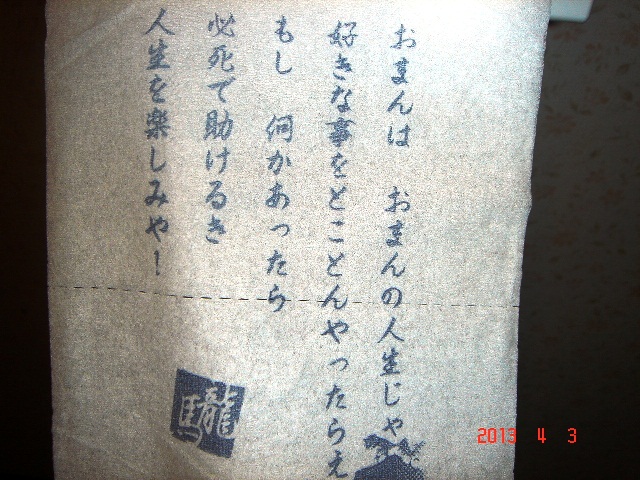 おまんは　おまんの人生じゃ
好きな事をとことんやったらえ
もし　何かあったら
必死で助けるき
人生を楽しみや！
龍馬
2013 4 3